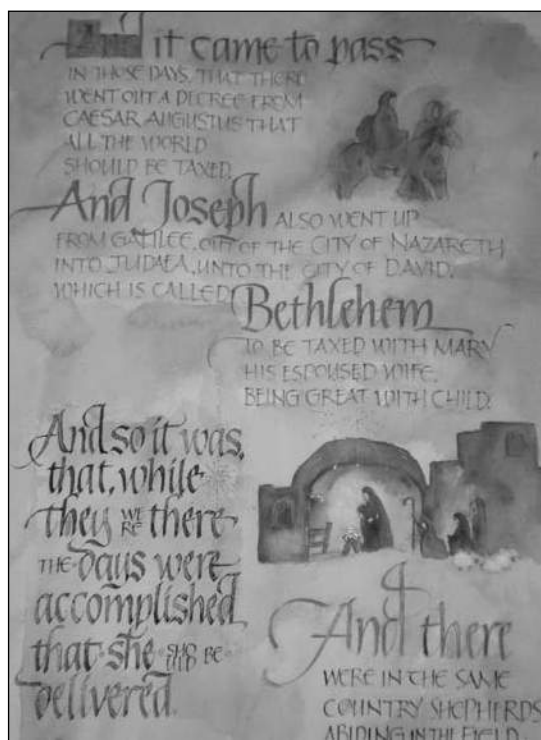 And it came to pass
IN THOSE DAYS, THAT THERE
WENT OUT A DECREE FROM
CAESAR AUGUSTUS THAT
ALL THE WORLD
SHOULD BE TAXED.
And Joseph ALSO WENT UP
FROM GALILEE, OUT OF THE CITY OF NAZARETH
INTO JUDAEA, UNTO THE CITY OF DAVID,
WHICH IS CALLED Bethlehem
TO BE TAXED WITH MARY
HIS ESPOUSED WIFE,
BEING GREAT WITH CHILD.
And so it was,
that, while
they WERE there
THE days were
accomplished
that she SHOULD BE
delivered.
And there
WERE IN THE SAME
COUNTRY SHEPHERDS
ABIDING IN THE FIELD,